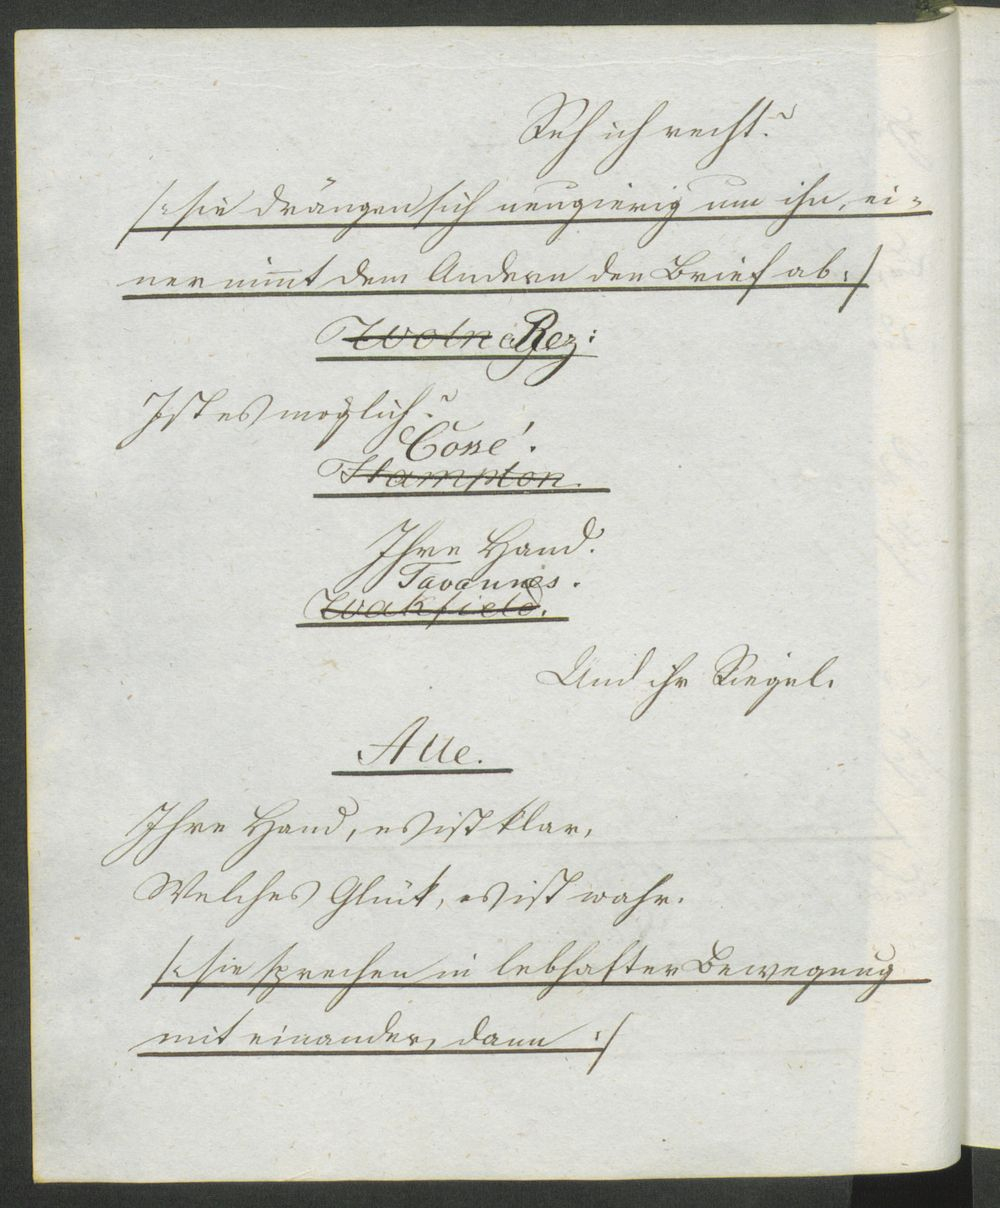 Seh ich recht?
/: sie drängen sich neugierig um ihn, ei=
ner nimt dem Andern den Brief ab :/
Rez:
Ist es möglich?
Cossé.
Hampton.
Ihre Hand.
Tavannes.
Wakfield.
Und ihr Siegel.
Alle.
Ihre Hand, es ist klar,
Welches Glück, es ist wahr.
/: sie sprechen in lebhafter Bewegung
mit einander, dann :/